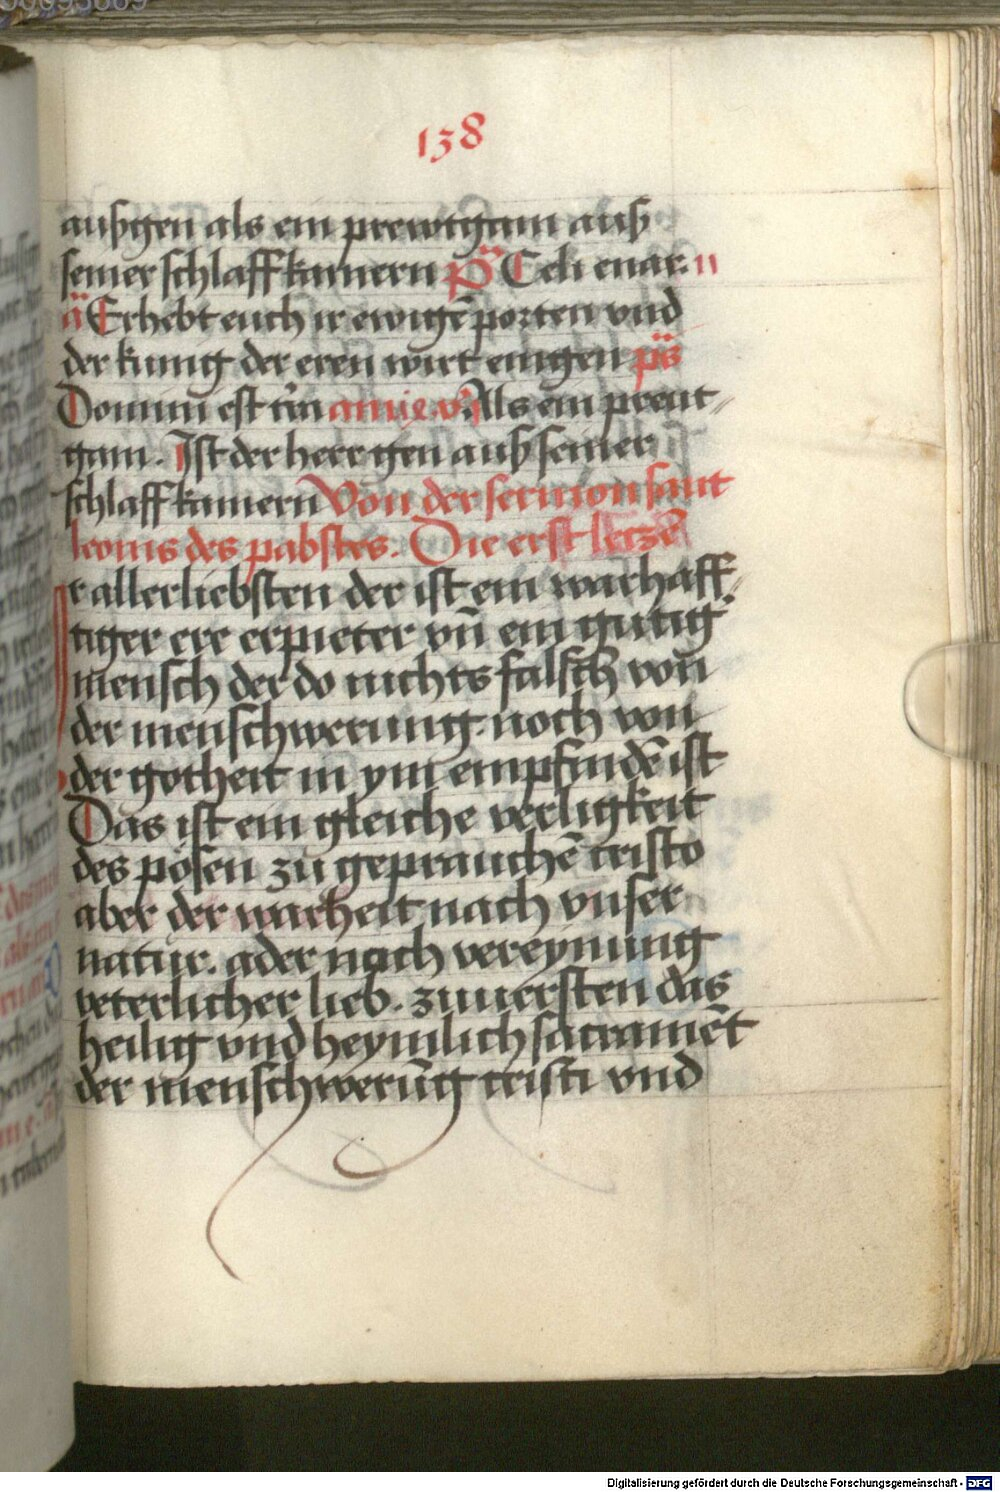 138
außgen als ein prewtgam auß
seiner schlaffkamern ps̈ Celi enar.
ä Erhebt euch ir ewigē porten vnd
der kunig der eren wirt eingen ps̈
Domini est t̄ra v̈ Als ein preut„
gam. Ist der herr gen auß seiner
schlaffkamern Von der sermon sant
leonis des pabstes. Die erst letzē
Ir allerliebsten der ist ein warhaff„
tiger ere erpieter vn̄ ein gutig
mensch der do nichts falsch von
der menschwerung. noch von
der gotheit in ym empfindē ist
Das ist ein gleiche verligkeit
des pösen zu geprauchē cristo
aber der warheit nach vnser
natur. ader nach vereynung
veterlicher lieb. zuuersten das
heilig vnd heymlich sacramēt
der menschwerūg cristi vnd
Digitalisierung gefördert durch die Deutsche Forschungsgemeinschaft - DFG